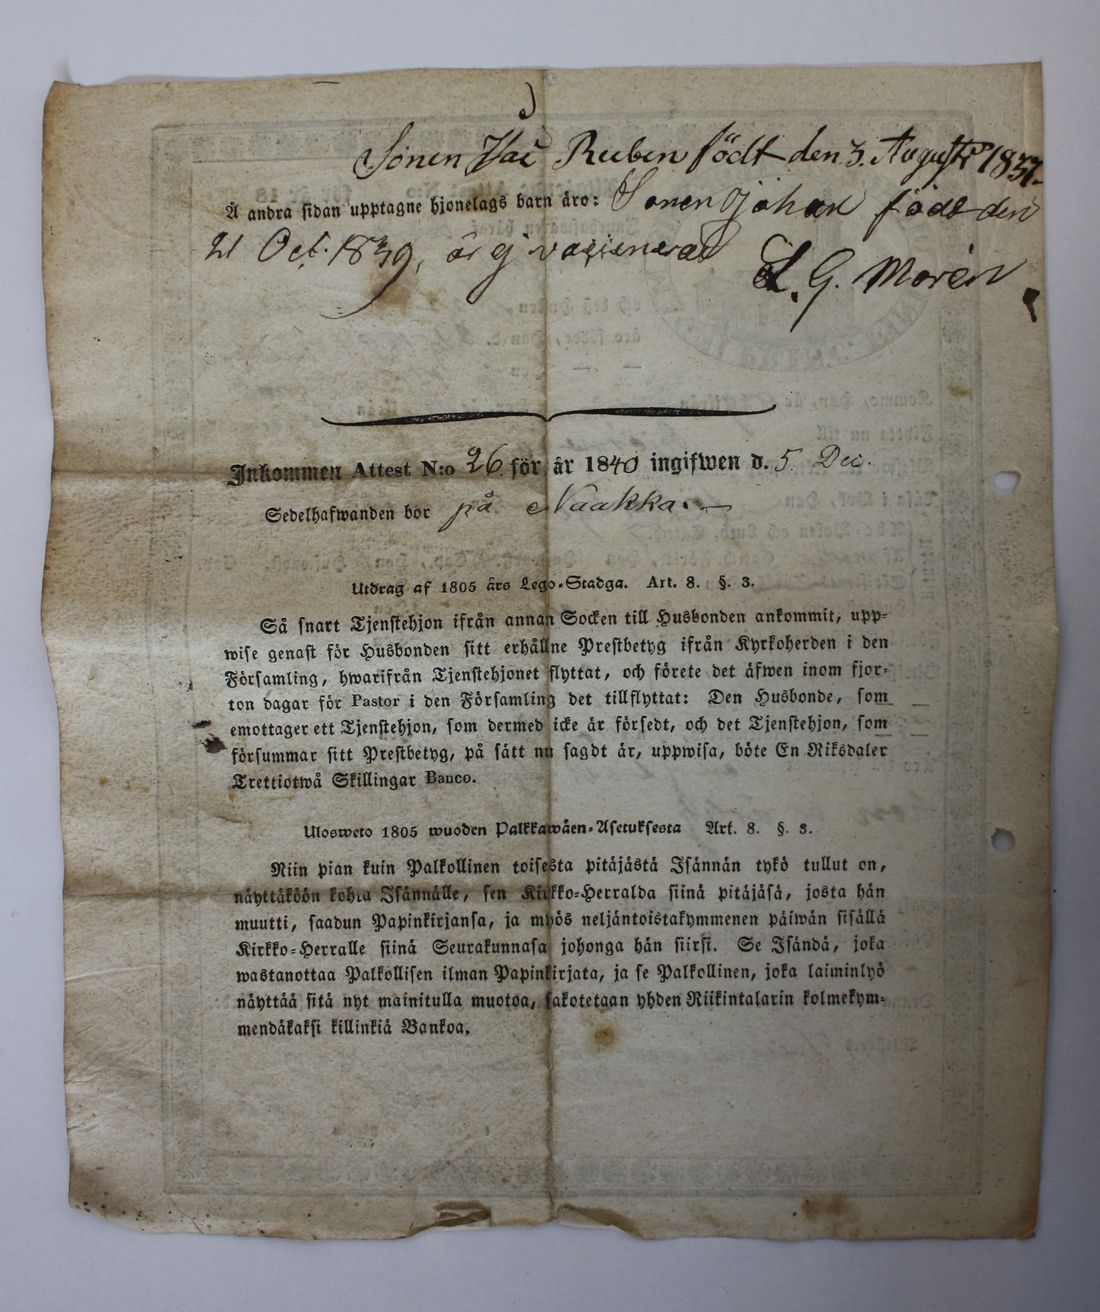 Sonen Isac Ruben födt den 3. Augusti 1837.
Å andra sidan upptagne hjonelags barn äro: Sonen Johan född den
21 Oct. 1839, är ej vaccinerad
L. G. Morén
Inkommen Attest N:o 26 för år 1840 ingifwen d. 5 Dec.
Sedelhafwanden bor på Naakka.
Utdrag af 1805 års Lego-Stadga. Art. 8. §. 3.
Så snart Tjenstehjon ifrån annan Socken till Husbonden ankommit, upp-
wise genast för Husbonden sitt erhållne Prestbetyg ifrån Kyrkoherden i den
Församling, hwarifrån Tjenstehjonet flyttat, och förete det äfwen inom fjor-
ton dagar för Pastor i den Församling det tillflyttat: Den Husbonde, som
emottager ett Tjenstehjon, som dermed icke är försedt, och det Tjenstehjon, som
försummar sitt Prestbetyg, på sätt nu sagdt är, uppwisa, böte En Riksdaler
Trettiotwå Skillingar Banco.
Ulosweto 1805 wuoden Palkkawäen-Asetuksesta Art. 8. §. 3.
Niin pian kuin Palkollinen toisesta pitäjästä Isännän tykö tullut on,
näyttäköön kohta Isännälle, sen Kirkko-Herralda siinä pitäjäsä, josta hän
muutti, saadun Papinkirjansa, ja myös neljäntoistakymmenen päiwän sisällä
Kirkko-Herralle siinä Seurakunnasa johonga hän siirsi. Se Isändä, joka
wastanottaa Palkollisen ilman Papinkirjata, ja se Palkollinen, joka laiminlyö
näyttää sitä nyt mainitulla muotoa, sakotetaan yhden Riikintalarin kolmekym-
mendäkaksi killinkiä Bankoa.